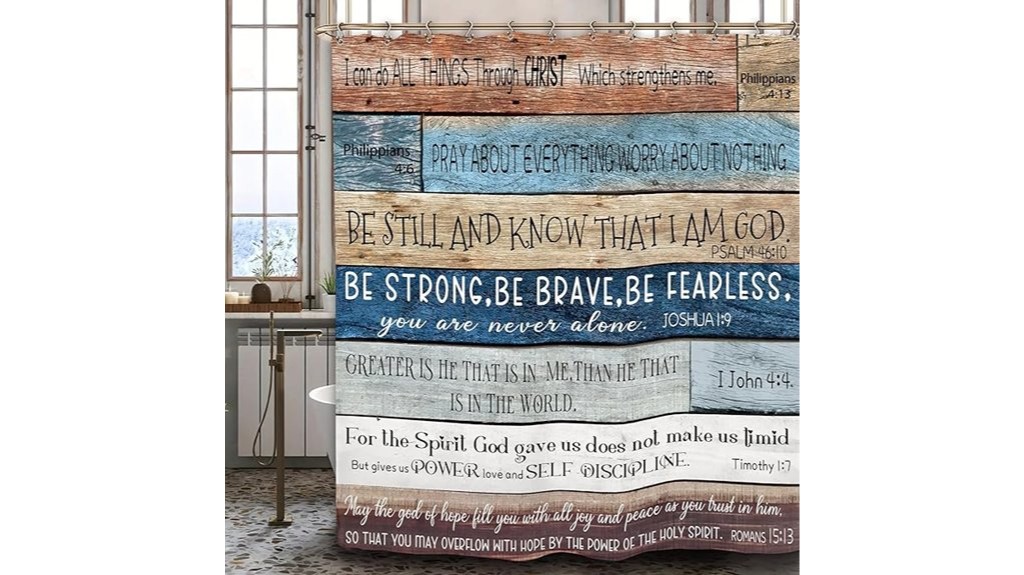 I can do ALL THINGS Through CHRIST Which strengthens me.
Philippians
4:13
Philippians
4:6
PRAY ABOUT EVERYTHING WORRY ABOUT NOTHING
BE STILL AND KNOW THAT I AM GOD.
PSALM 46:10
BE STRONG, BE BRAVE, BE FEARLESS,
you are never alone. JOSHUA 1:9
GREATER IS HE THAT IS IN ME, THAN HE THAT
IS IN THE WORLD.
I John 4:4.
For the Spirit God gave us does not make us timid
But gives us POWER love and SELF DISCIPLINE. Timothy 1:7
May the god of hope fill you with all joy and peace as you trust in him,
SO THAT YOU MAY OVERFLOW WITH HOPE BY THE POWER OF THE HOLY SPIRIT. ROMANS 15:13